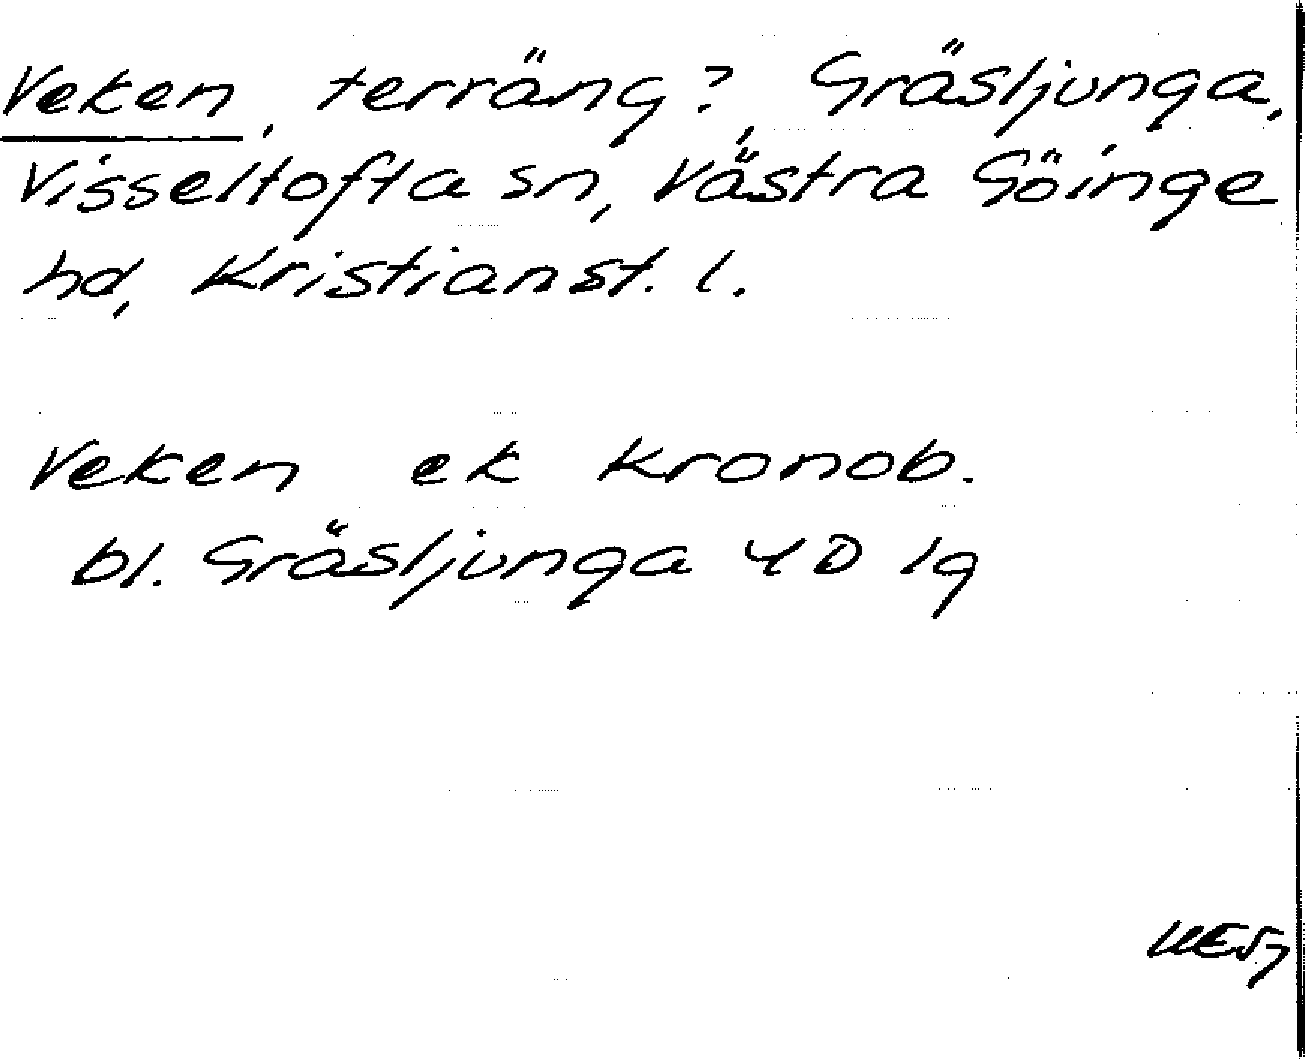 Veken, terräng?, Gräsljunga,
Visseltofta sn, Västra Göinge
hd, Kristianst. l.
Veken ek Kronob.
bl. Gräsljunga 4D lg